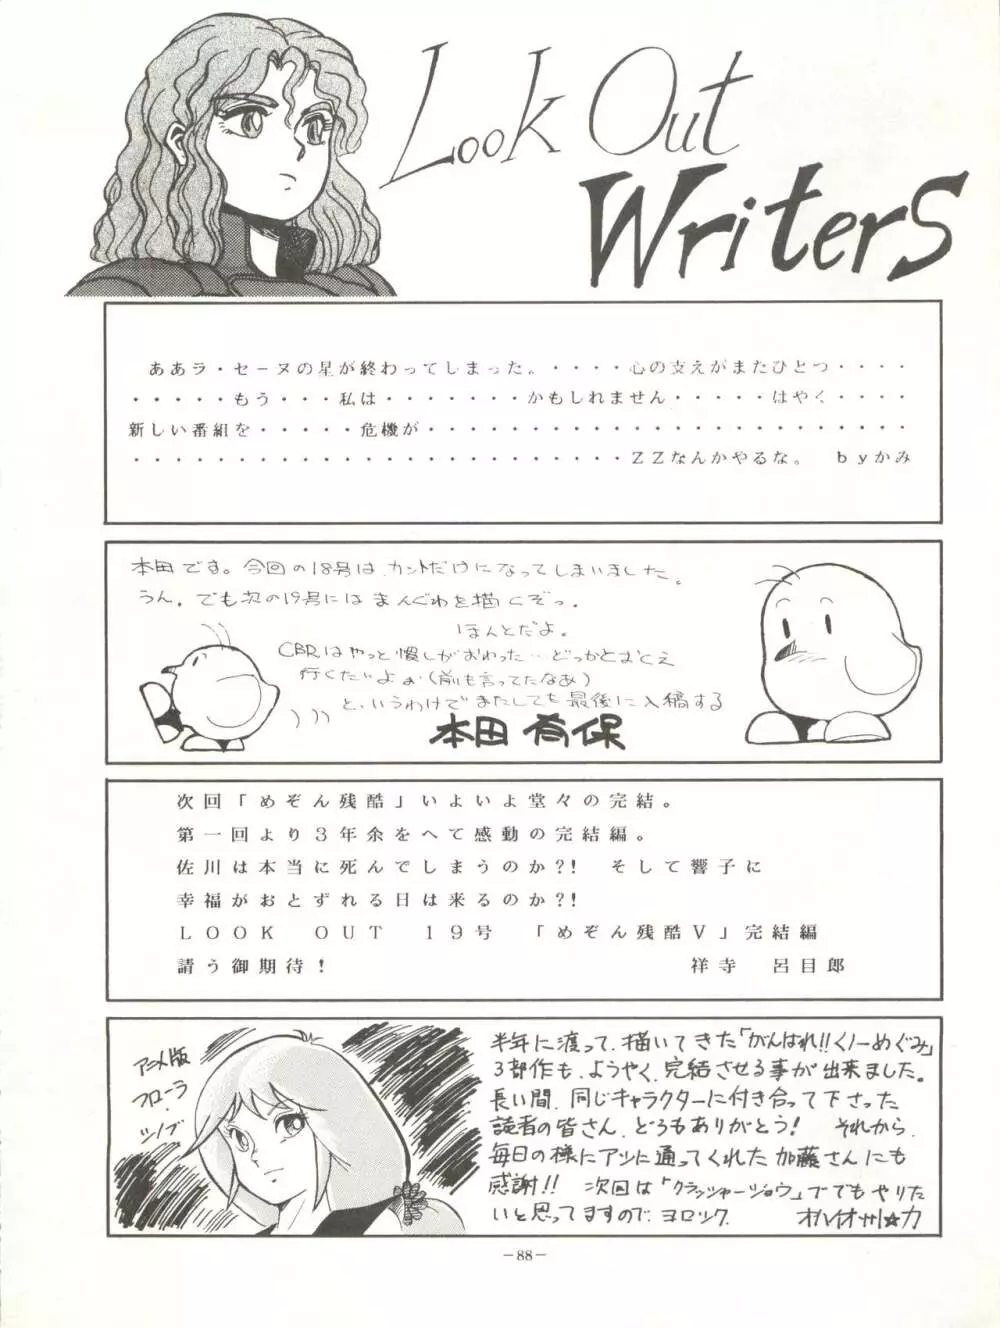 Look Out
Writers
ああラ・セーヌの星が終わってしまった。・・・・心の支えがまたひとつ・・・・
・・・・・もう・・・私は・・・・・・・かもしれません・・・・・はやく・・・・
新しい番組を・・・・・危機が・・・・・・・・・・・・・・・・・・・・・・・
・・・・・・・・・・・・・・・・・・・・・・・ZZなんかやるな。 byかみ
本田です。今回の18号は、カットだけになってしまいました。
うん。でも次の19号にはまんぐわを描くぞっ。
ほんとだよ。
CBRはやっと慣しがおわった…どっかとおくえ
行くたいよぉ(前も言ってたなあ)
と、いうわけでまたしても最後に入稿する
本田有保
次回「めぞん残酷」いよいよ堂々の完結。
第一回より3年余をへて感動の完結編。
佐川は本当に死んでしまうのか?! そして響子に
幸福がおとずれる日は来るのか?!
LOOK OUT 19号 「めぞん残酷V」完結編
請う御期待! 祥寺 呂目郎
アニメ版
フローラ・
ツノブ
半年に渡って、描いてきた「がんばれ!!くノ一めぐみ」
3部作も、ようやく、完結させる事が出来ました。
長い間、同じキャラクターに付き合って下さった
読者の皆さん、どうもありがとう! それから、
毎日の様にアシに通ってくれた加藤さんにも
感謝!! 次回は「クラッシャージョウ」ででもやりた
いと思ってますので、ヨロシク。
－88－